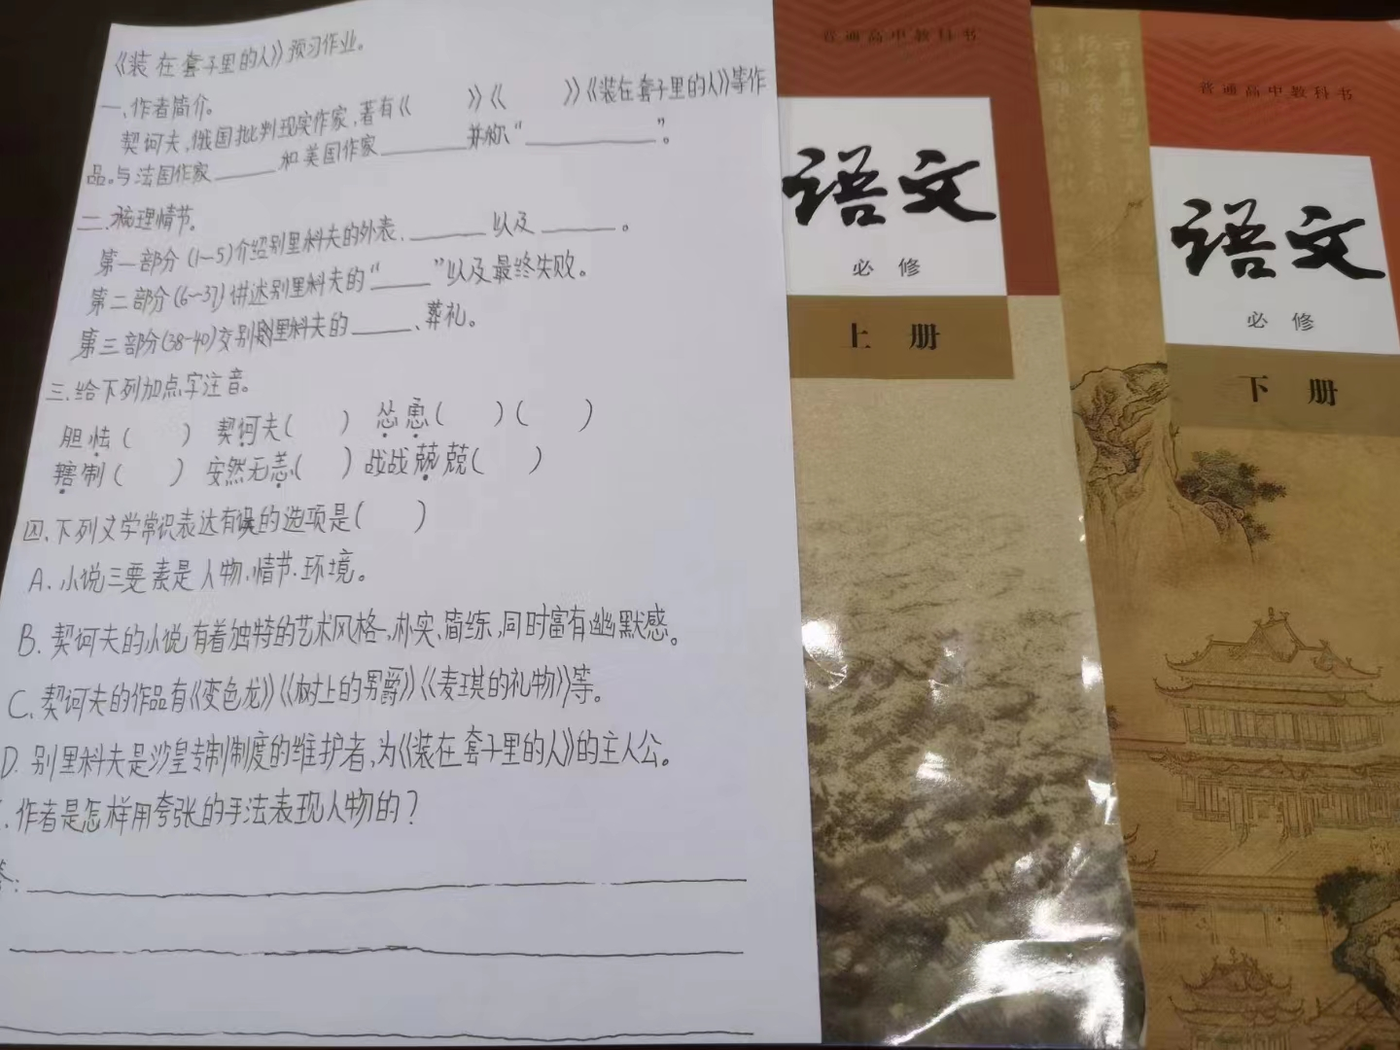 《装在套子里的人》预习作业。
一、作者简介。
契诃夫,俄国批判现实作家,著有《 》《 》《装在套子里的人》等作
品。与法国作家______和美国作家______并称“______”。
二.梳理情节。
第一部分(1-5)介绍别里科夫的外表、______以及______。
第二部分(6-37)讲述别里科夫的“____”以及最终失败。
第三部分(38-40)交别里科夫的____、葬礼。
三.给下列加点字注音。
胆怯( ) 契诃夫( ) 怂恿( )( )
辖制( ) 安然无恙( ) 战战兢兢( )
四、下列文学常识表达有误的选项是( )
A.小说三要素是人物、情节、环境。
B.契诃夫的小说,有着独特的艺术风格,朴实、简练,同时富有幽默感。
C.契诃夫的作品有《变色龙》《树上的男爵》《麦琪的礼物》等。
D.别里科夫是沙皇专制制度的维护者,为《装在套子里的人》的主人公。
作者是怎样用夸张的手法表现人物的?
答:
普通高中教科书
语文
必修
上册
普通高中教科书
语文
必修
下册